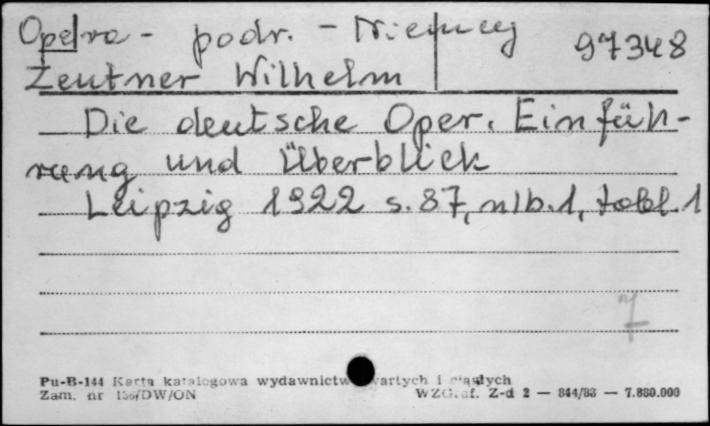 Opera - podr. - Niemcy 97348
Zentner Wilhelm
Die deutsche Oper. Einfüh-
rung und Überblick
Leipzig 1922 s. 87, nlb. 1, tabl. 1
7
Pu-B-144 Karta katalogowa wydawnictw zwartych i ciągłych
Zam. nr 156/DW/ON WZGraf. Z-d 2 — 844/83 — 7.880.000